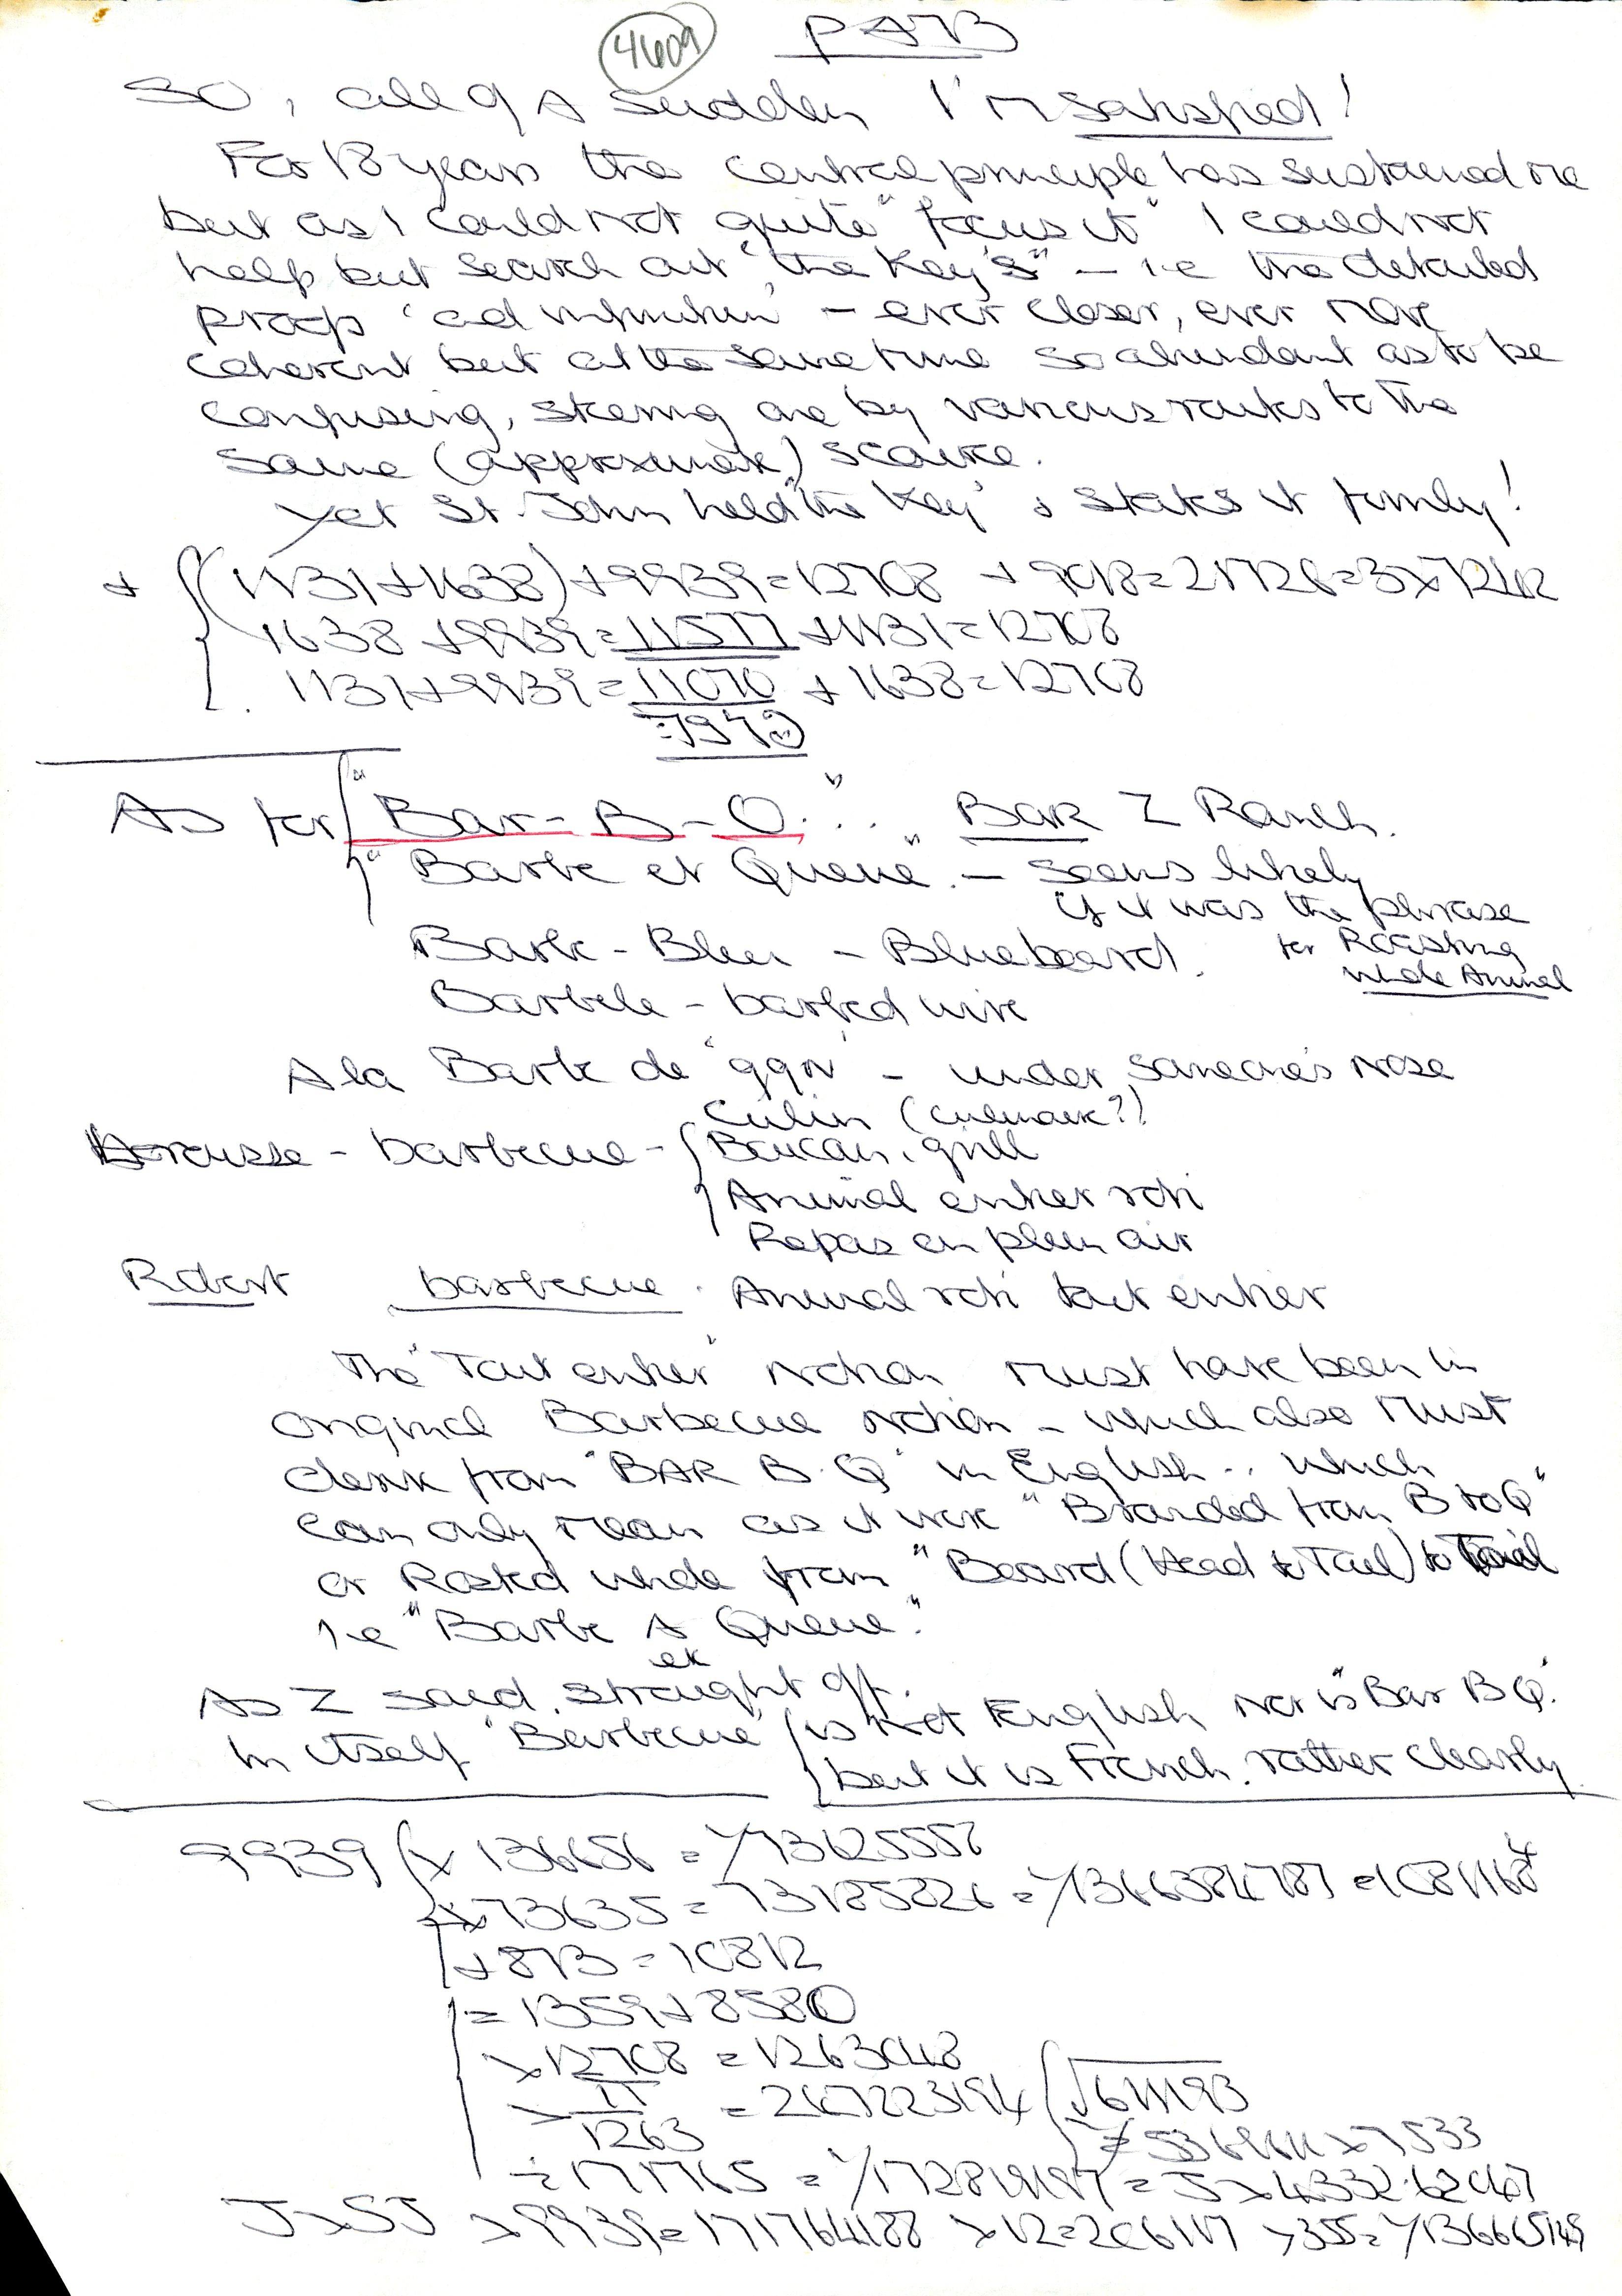 4609
SO, all of A sudden I'm satisfied!
For 18 years the central principle has sustained me
but as I could not quite "focus it" I could not
help but search out "the Key's" – i.e the detailed
proofs 'ad infinitum' – ever closer, ever more
coherent but at the same time so abundant as to be
confusing, steering one by various routes to the
same (approximate) source.
Yet St. John held "the Key" & states it firmly!
+ (1131+1638)+9939=12708 + 9018=21726=3x7242
1638+9939=11577+1131=12708
1131+9939=11070+1638=12708
As for "Bar-B-Q"... BAR Z Ranch.
"Barbe et Queue" – seems likely
if it was the phrase
for Roasting
whole Animal
Barbe-Bleu – Bluebeard.
Barbele – barbed wire
A la Barbe de 'qqn' – under someone's nose
Culin (culinaire?)
Larousse – barbecue – Boucan, grill
Animal entier roti
Repas en plein air
Robert barbecue. Animal roti tout entier
The "Tout entier" notion must have been in
original Barbecue notion – which also must
derive from "BAR B.Q" in English.. which
can only mean as it were "Branded from B to Q"
or Roasted whole from "Beard (Head to Tail) to Tail
i.e "Barbe A Queue."
et
As Z said straight off.
In itself "Barbecue" is not English nor is "Bar BQ."
but it is French. rather clearly.
9939 x 136656 = 1/73625557
x 73635 = 73185826 = 1/1366384787 =1081168
+873 = 10812
= 1359+8580
x12708 = 1263048
x 11/1263 = 267223194 √611193
÷171765 = 1/172819197 = J x 4332.62067
JxSJ x9939=171764188 x12=206117 x355=1/136665149